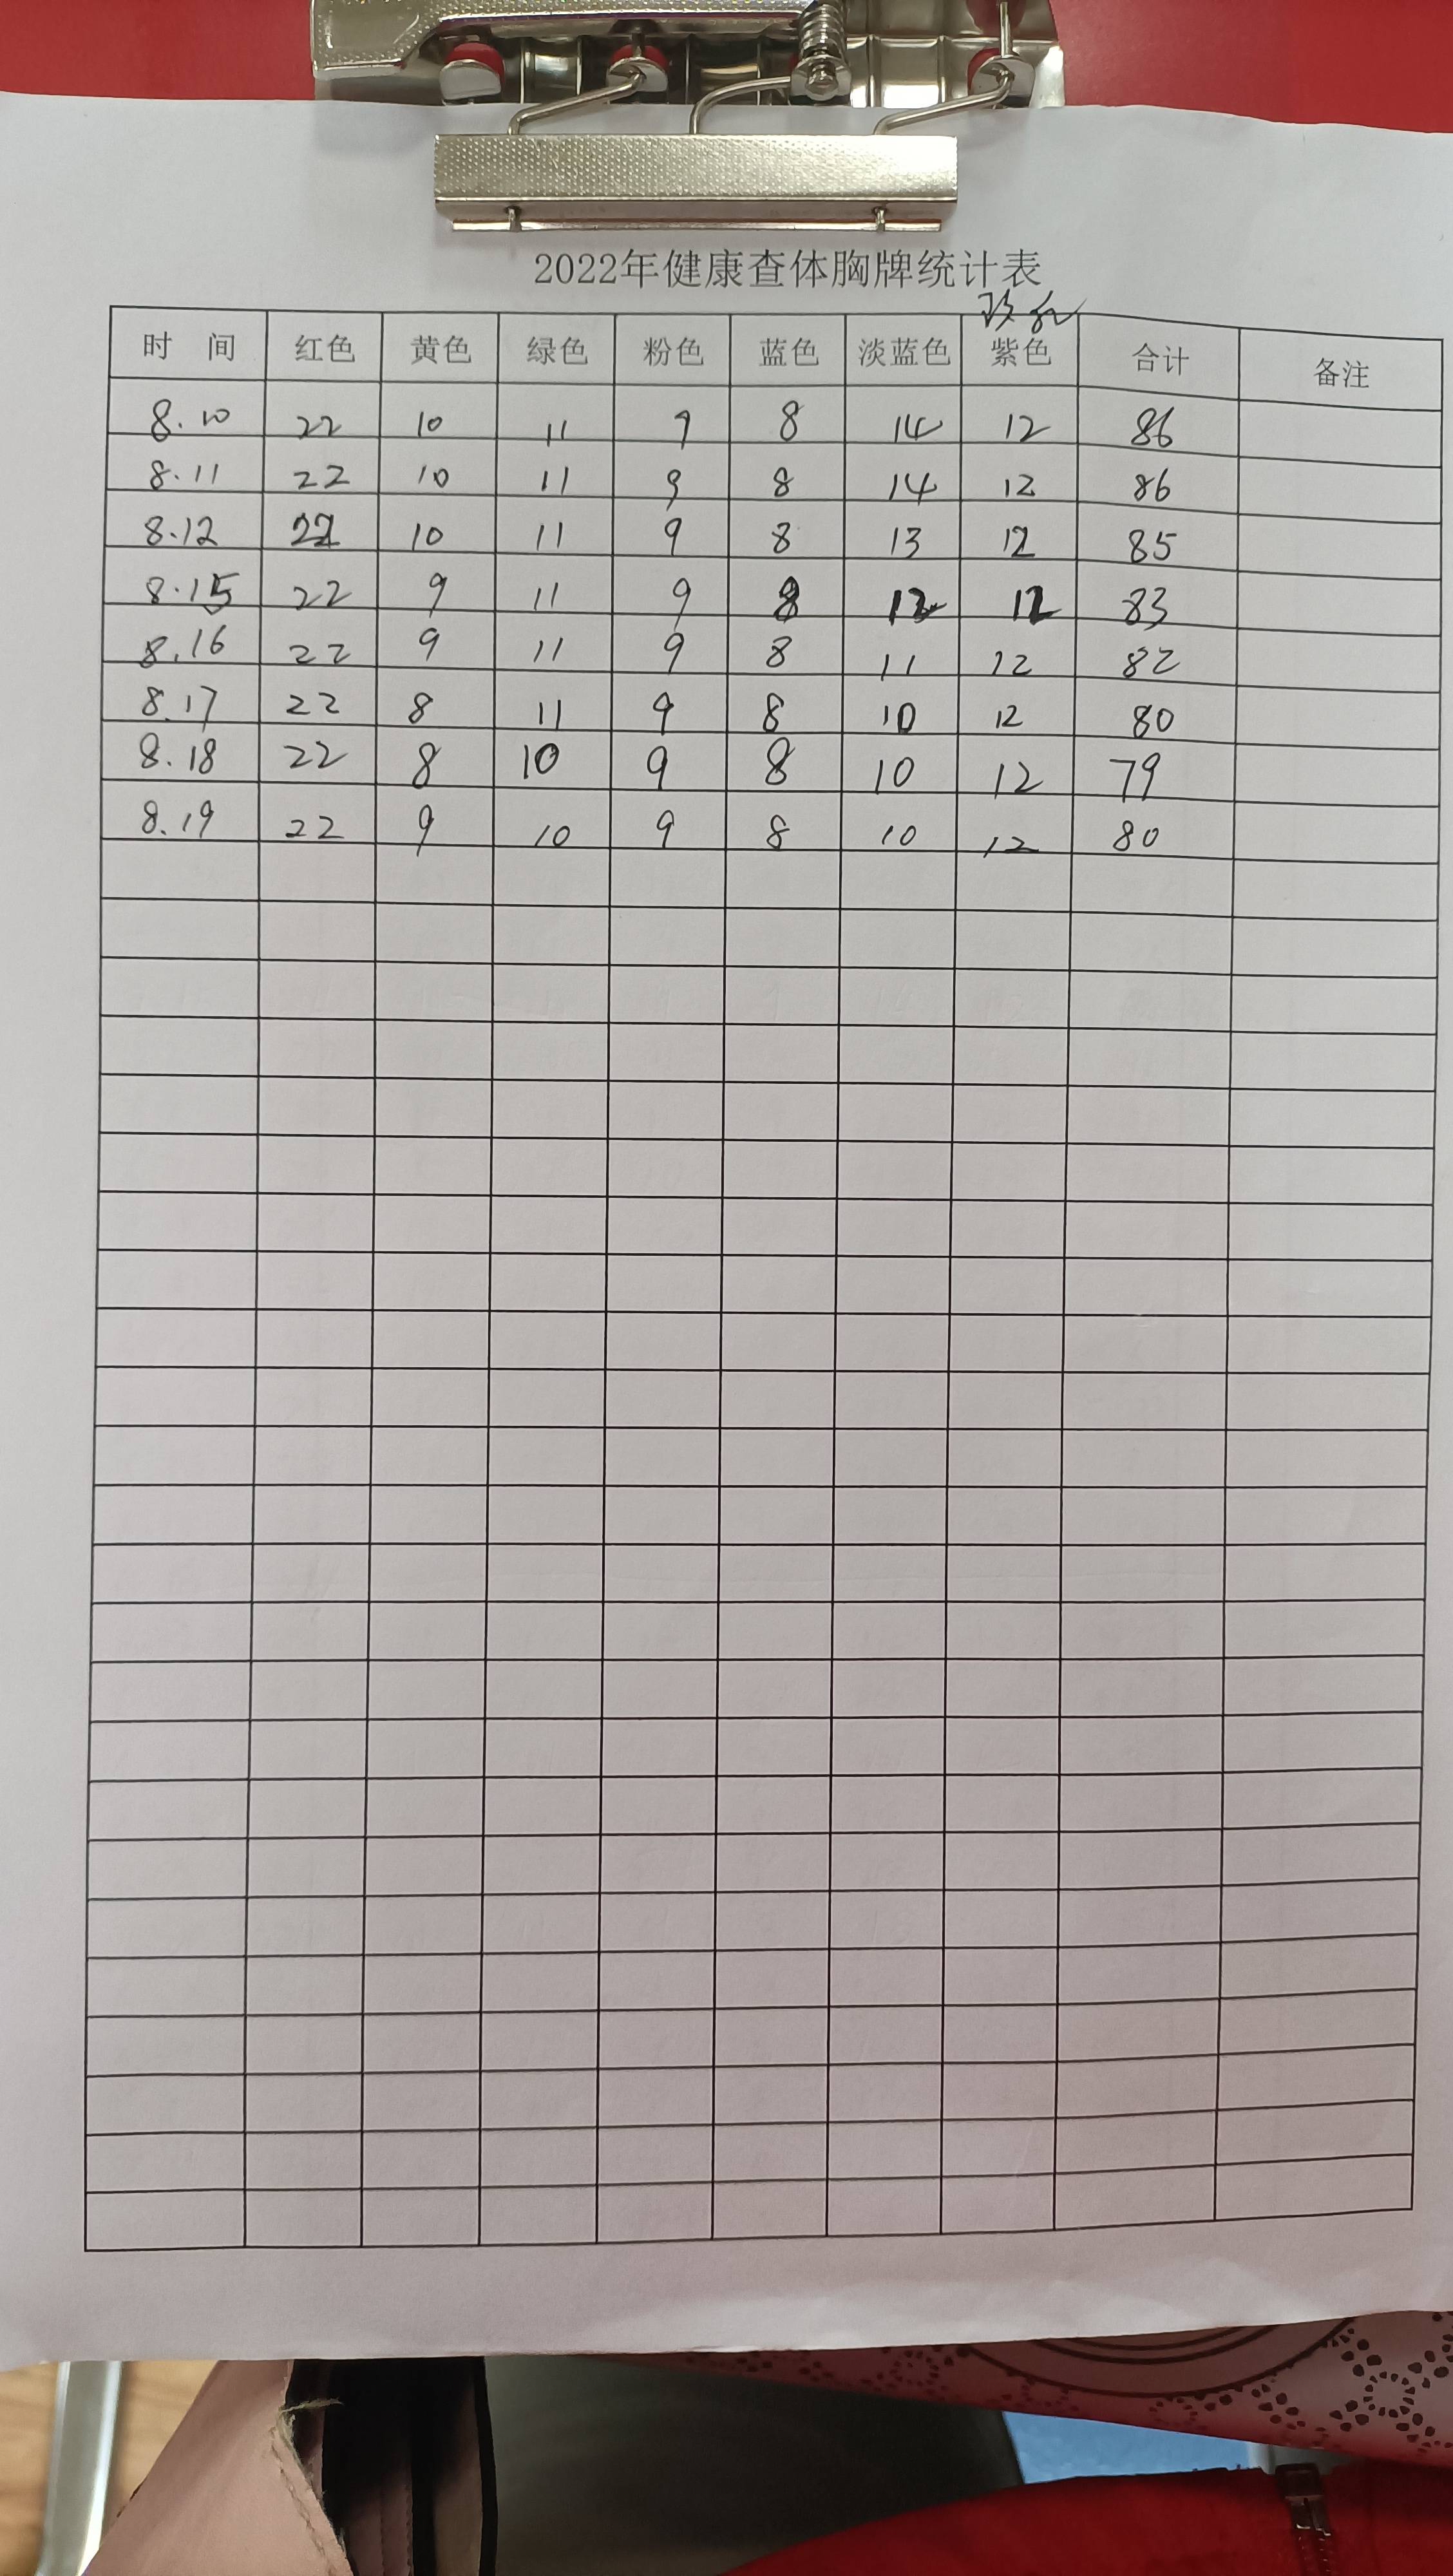 2022年健康查体胸牌统计表
玫红
时 间 红色 黄色 绿色 粉色 蓝色 淡蓝色 紫色 合计 备注
8.10 22 10 11 9 8 14 12 86
8.11 22 10 11 9 8 14 12 86
8.12 22 10 11 9 8 13 12 85
8.15 22 9 11 9 8 12 12 83
8.16 22 9 11 9 8 11 12 82
8.17 22 8 11 9 8 10 12 80
8.18 22 8 10 9 8 10 12 79
8.19 22 9 10 9 8 10 12 80